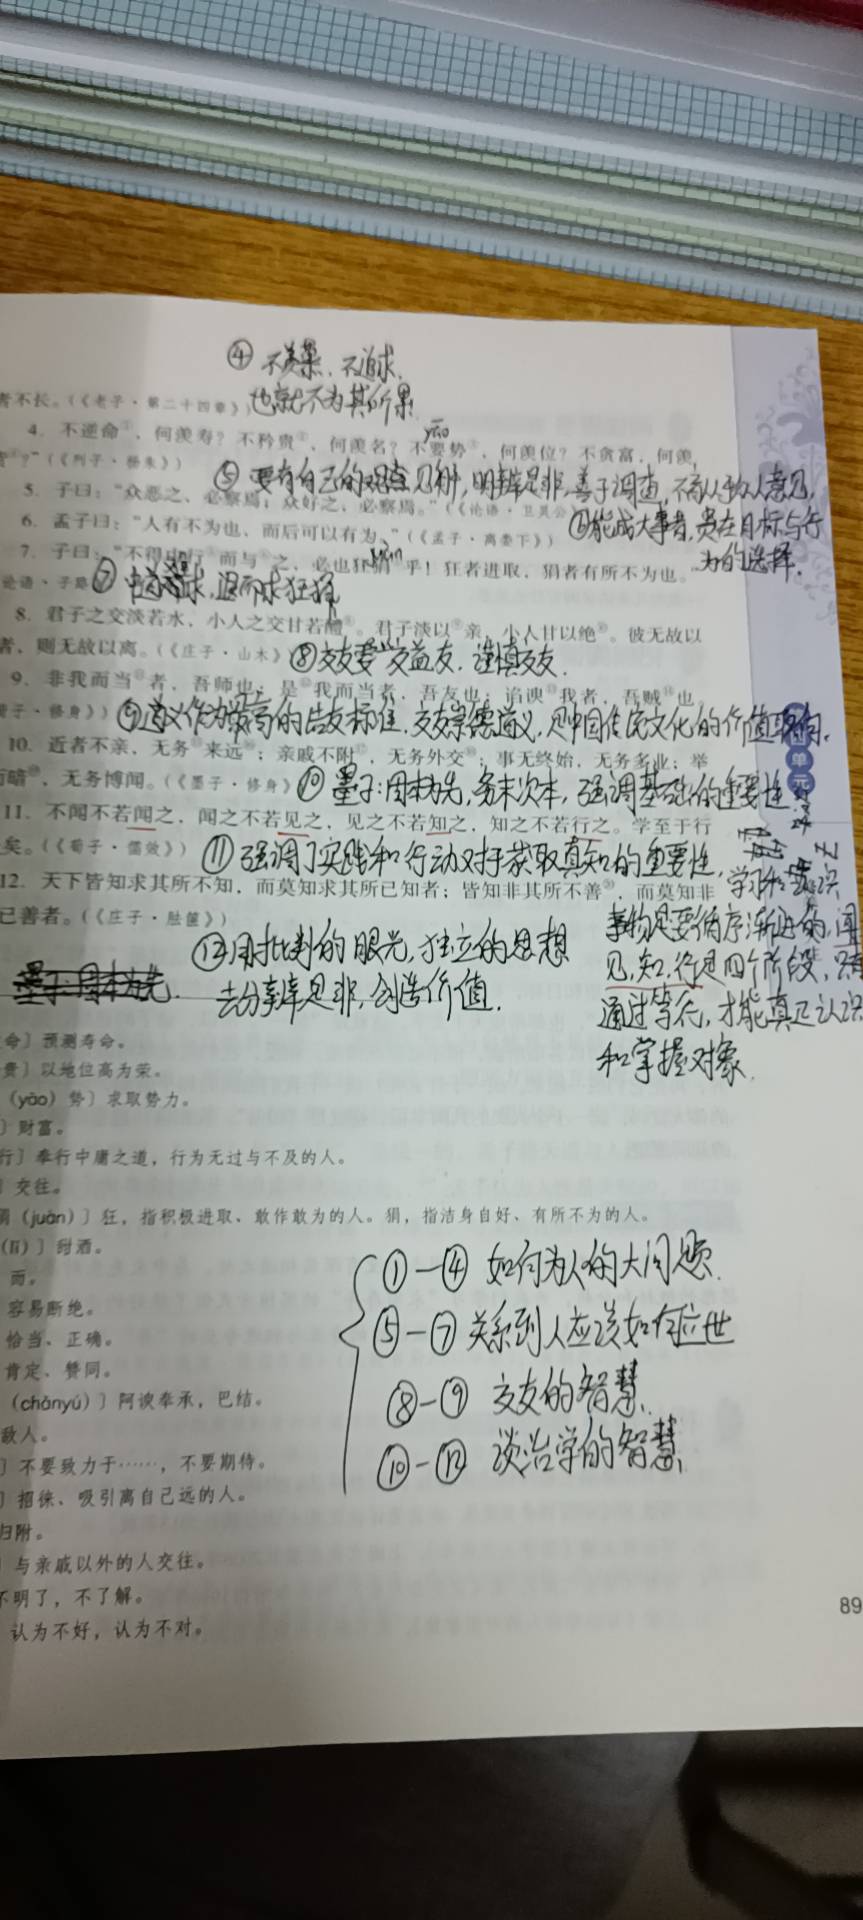 ④ 不羡慕、不追求,
也就不为其所累
者不长。(《老子·第二十四章》)
4. 不逆命①,何羡寿?不矜贵②,何羡名?不要势③,何羡位?不贪富,何羡
yāo
货④?”(《列子·杨朱》)
⑤ 要有自己的观点见解,明辨是非,善于调查,不盲从于众人意见。
5. 子曰:“众恶之,必察焉;众好之,必察焉。”(《论语·卫灵公》)
6. 孟子曰:“人有不为也,而后可以有为。”(《孟子·离娄下》)
⑥能成大事者,贵在目标与行
为的选择.
7. 子曰:“不得中行⑤而与⑥之,必也狂狷⑦乎!狂者进取,狷者有所不为也。”
juàn
论语·子路
⑦ 求,退而求狂狷
8. 君子之交淡若水,小人之交甘若醴⑧。君子淡以⑨亲,小人甘以绝⑩。彼无故以
者,则无故以离。(《庄子·山木》)
⑧交友要“交益友,谨慎交友.
9. 非我而当⑪者,吾师也;是⑫我而当者,吾友也;谄谀⑬我者,吾贼⑭也。
荀子·修身》)
⑨道义作为最高的结友标准,交友崇德道义,见中国传统文化的价值取向.
10. 近者不亲,无务⑮来远⑯;亲戚不附⑰,无务外交⑱;事无终始,无务多业;举
而暗⑲,无务博闻。(《墨子·修身》)
⑩ 墨子:固本为先,务末次本,强调基础的重要性
单元
11. 不闻不若闻之,闻之不若见之,见之不若知之,知之不若行之。学至于行
矣。(《荀子·儒效》)
⑪ 强调了实践和行动对于获取真知的重要性,
学习和认识
事物是要循序渐进的,闻
见,知,行是四个阶段,只有
通过笃行,才能真正认识
和掌握对象.
12. 天下皆知求其所不知,而莫知求其所已知者;皆知非其所不善⑳,而莫知非
已善者。(《庄子·胠箧》)
⑫用批判的眼光,独立的思想
去分辨是非,创造价值.
墨子:固本为先.
命〕预测寿命。
贵〕以地位高为荣。
(yāo)势〕求取势力。
〕财富。
行〕奉行中庸之道,行为无过与不及的人。
〕交往。
狷(juàn)〕狂,指积极进取、敢作敢为的人。狷,指洁身自好、有所不为的人。
(lǐ)〕甜酒。
而。
容易断绝。
恰当、正确。
肯定、赞同。
(chǎnyú)〕阿谀奉承,巴结。
敌人。
〕不要致力于……,不要期待。
〕招徕、吸引离自己远的人。
归附。
〕与亲戚以外的人交往。
不明了,不了解。
认为不好,认为不对。
①—④ 如何为人的大问题.
⑤—⑦ 关系到人应该如何应世
⑧—⑨ 交友的智慧.
⑩—⑫ 谈治学的智慧.
89